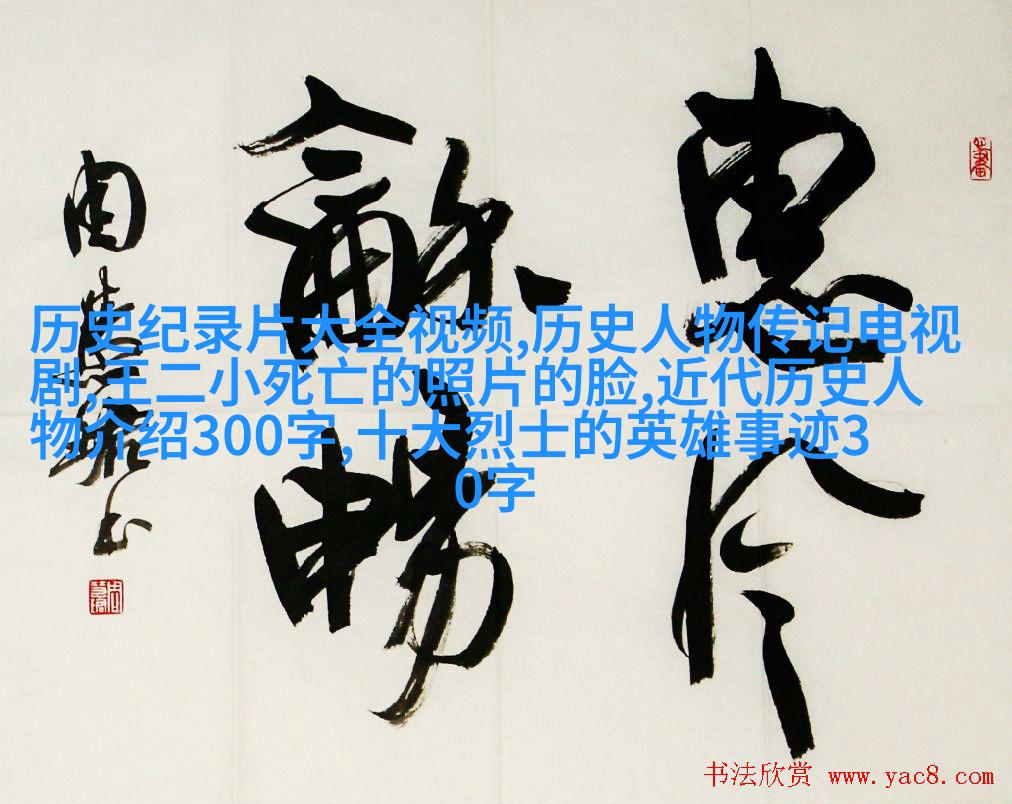 惠风
龢暢
周慧珺书
历史纪录片大全视频,历史人物传记电视
剧,王二小死亡的照片的脸,近代历史人
物介绍300字,十大烈士的英雄事迹3
0字
书法欣赏 www.yac8.com